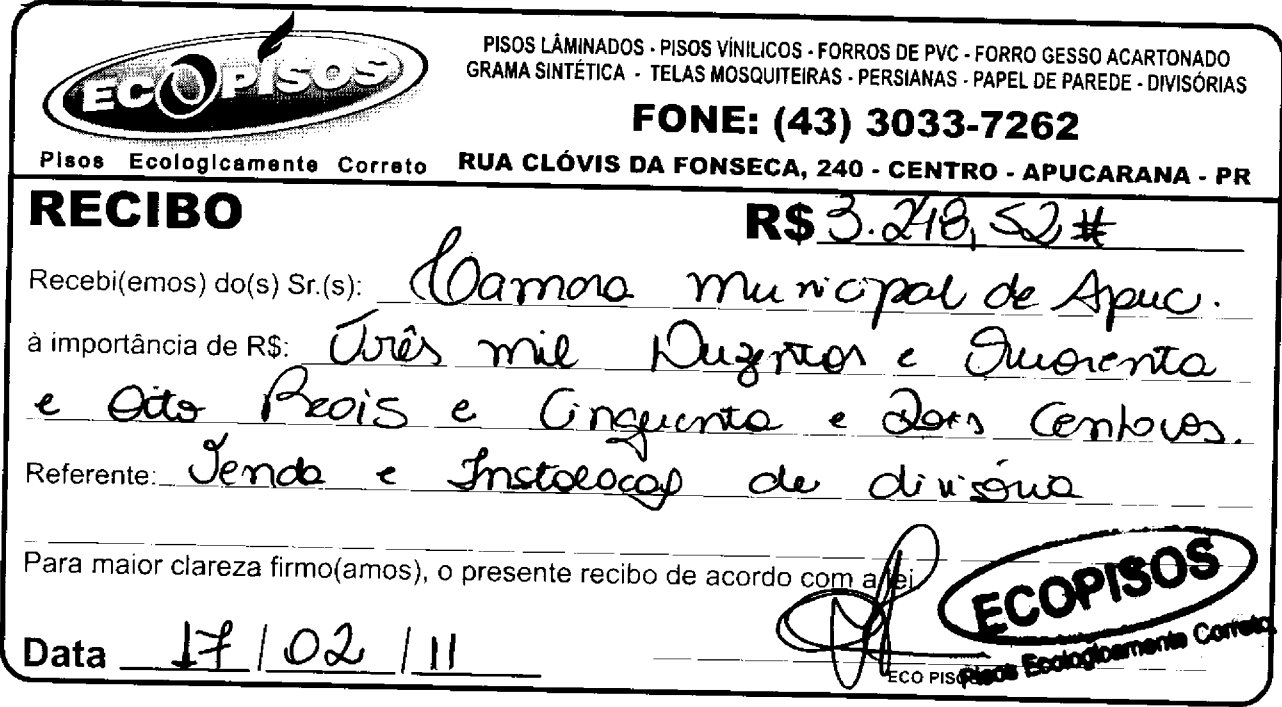 ECOPISOS
Pisos Ecologicamente Correto
PISOS LÂMINADOS - PISOS VÍNILICOS - FORROS DE PVC - FORRO GESSO ACARTONADO
GRAMA SINTÉTICA - TELAS MOSQUITEIRAS - PERSIANAS - PAPEL DE PAREDE - DIVISÓRIAS
FONE: (43) 3033-7262
RUA CLÓVIS DA FONSECA, 240 - CENTRO - APUCARANA - PR
RECIBO R$ 3.248,52 #
Recebi(emos) do(s) Sr.(s): Camara Municipal de Apuc.
à importância de R$: Três mil Duzentos e Quarenta
e Oito Reais e Cinquenta e Dois Centavos.
Referente: Venda e Instalação de divisória
Para maior clareza firmo(amos), o presente recibo de acordo com a lei
Data 17 / 02 / 11
ECO PISOS
ECOPISOS
Pisos Ecologicamente Correto